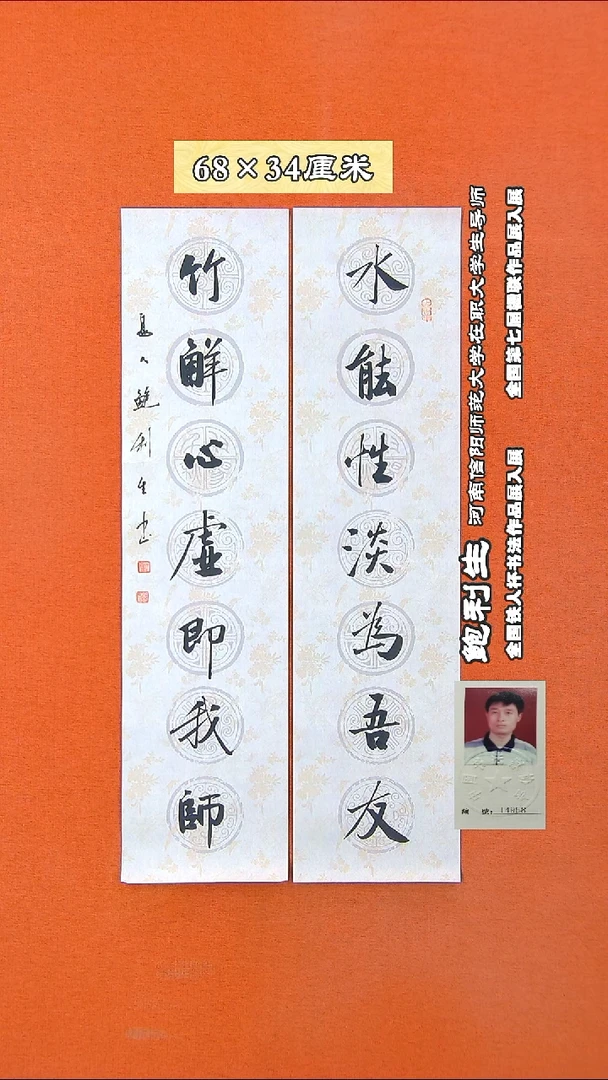 68×34厘米
水能性淡為吾友
竹觧心虛即我師
息人鮑利生书
鲍利生 河南信阳师范大学在职大学生导师
全国铁人杯书法作品展入展 全国第七届楹联作品展入展